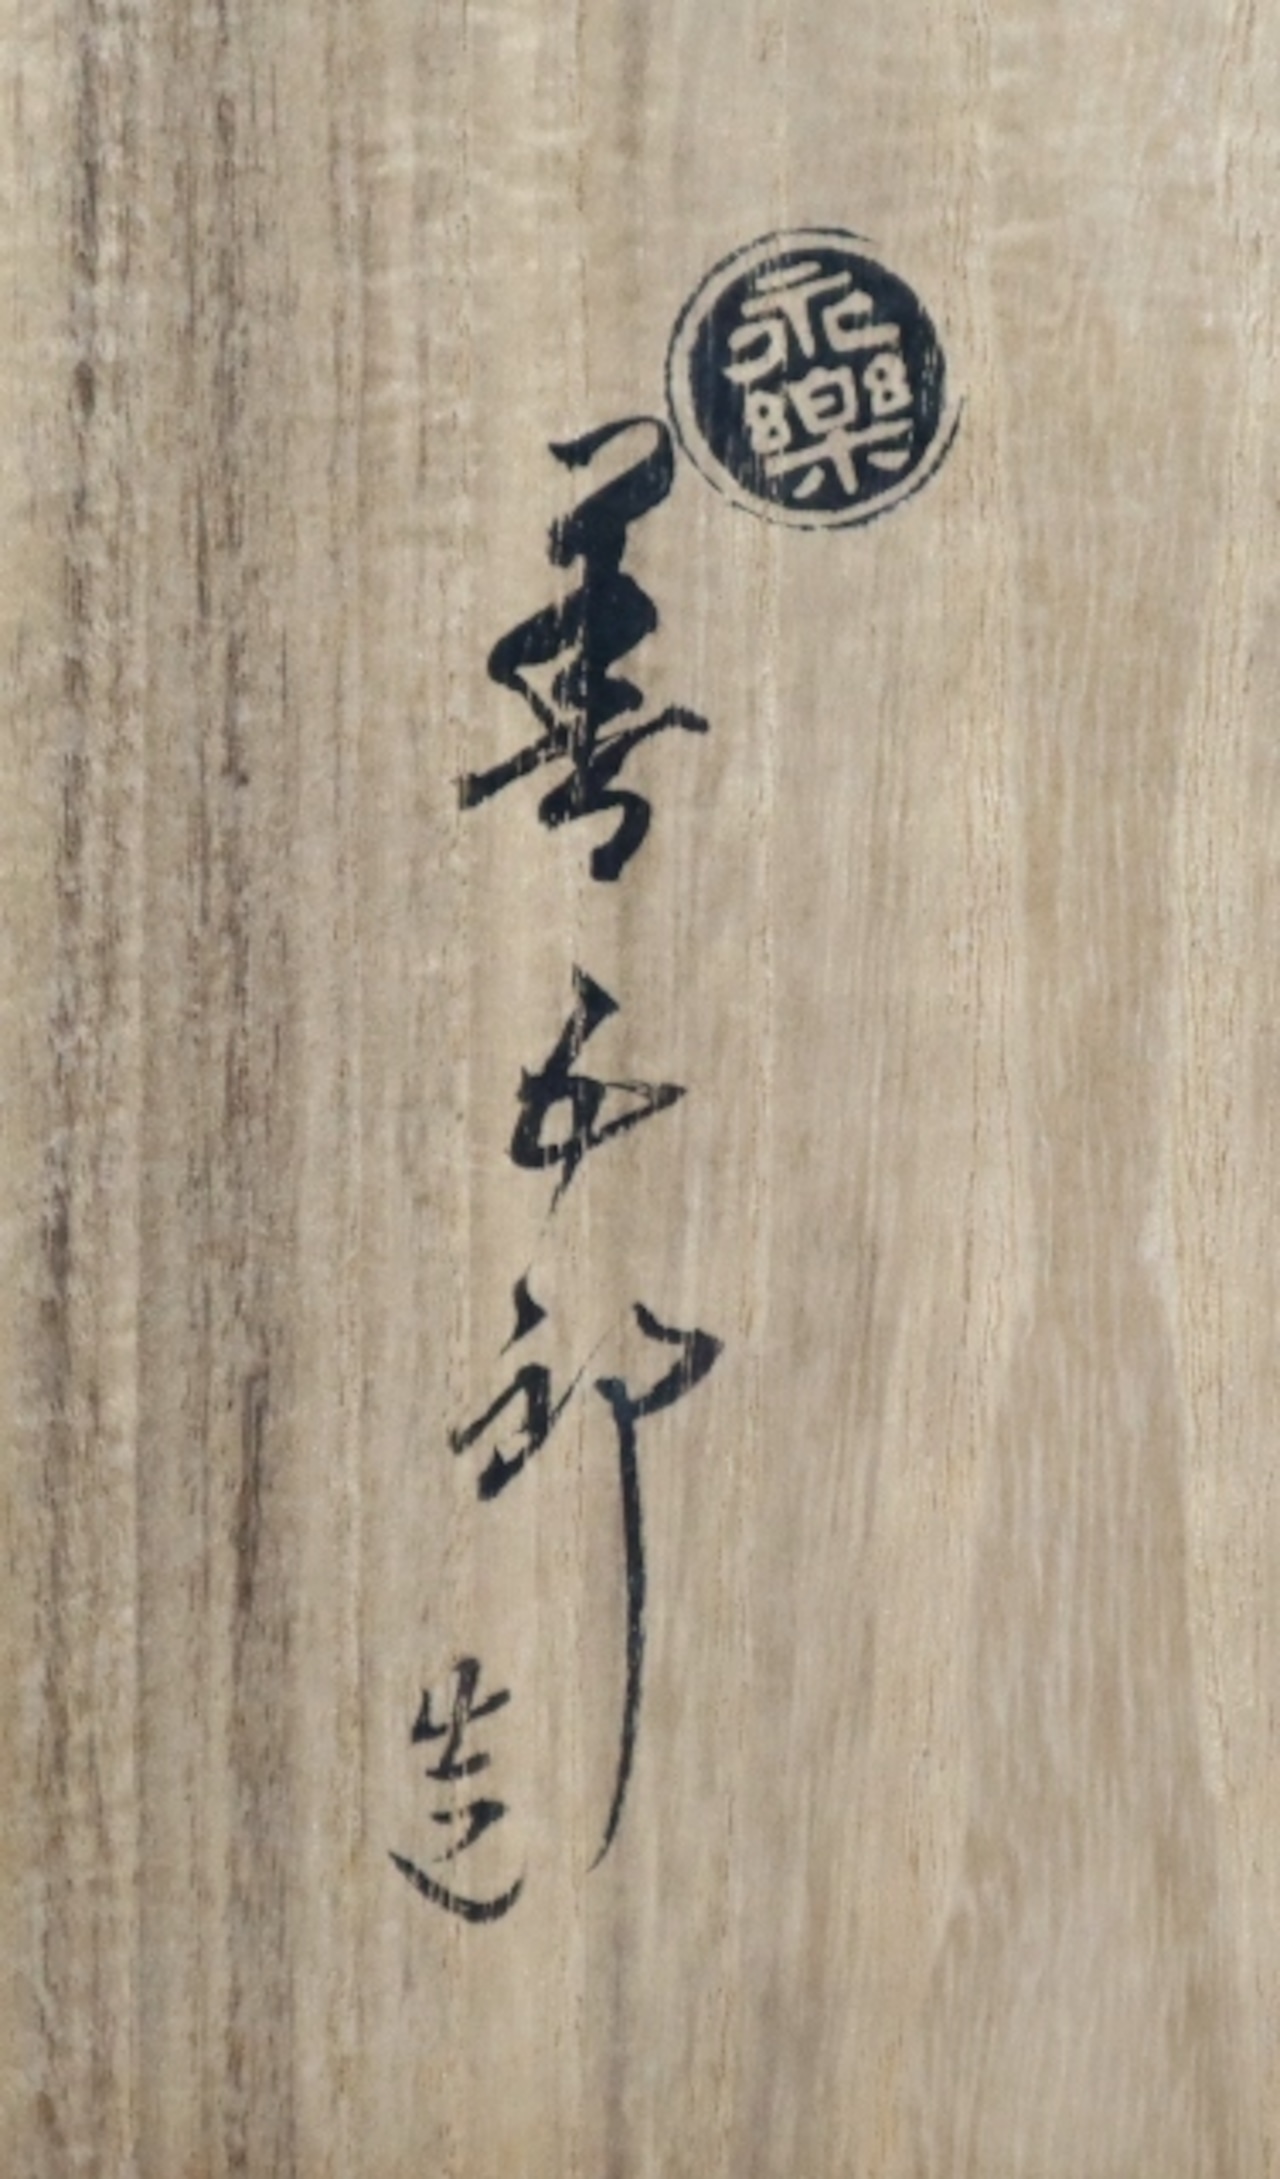 永樂
善五郎
造